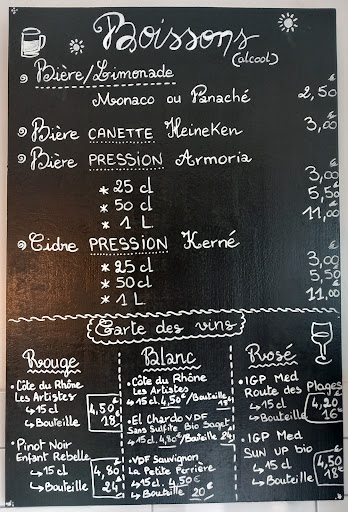 Boissons
(alcool)
Bière/Limonade
€
Monaco ou Panaché 2,50
€
Bière CANETTE HeineKen 3,00
Bière PRESSION Armoria
€
* 25 cl 3,00
* 50 cl 5,50
* 1 L. 11,00
Cidre PRESSION Kerné
€
* 25 cl 3,00
* 50 cl 5,50
* 1 L. 11,00
Carte des vins
Rouge
• Côte du Rhône
Les Artistes
↳ 15 cl 4,50€
↳ Bouteille 18€
• Pinot Noir
Enfant Rebelle
↳ 15 cl 4,80
↳ Bouteille 24€
Blanc
• Côte du Rhône
Les Artistes
↳ 15 cl. 4,50€/Bouteille
• El Chardo VDF
Sans Sulfite Bio Saget
↳ 15 cl. 4,80€/Bouteille 24€
• VDF Sauvignon
La Petite Perrière
↳ 15 cl 4,50€
↳ Bouteille 20€
Rosé
• IGP Med
Route des Plages
↳ 15 cl 4,20€
↳ Bouteille 16€
• IGP Med
SUN UP bio
↳ 15 cl 4,50€
↳ Bouteille 18€